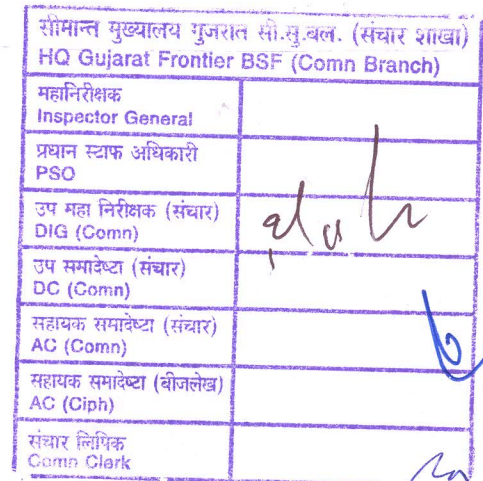 सीमान्त मुख्यालय गुजरात सी.सु.बल. (संचार शाखा)
HQ Gujarat Frontier BSF (Comn Branch)
महानिरीक्षक
Inspector General
प्रधान स्टाफ अधिकारी
PSO
उप महा निरीक्षक (संचार)
DIG (Comn)
उप समादेष्टा (संचार)
DC (Comn)
सहायक समादेष्टा (संचार)
AC (Comn)
सहायक समादेष्टा (बीजलेख)
AC (Ciph)
संचार लिपिक
Comn Clerk